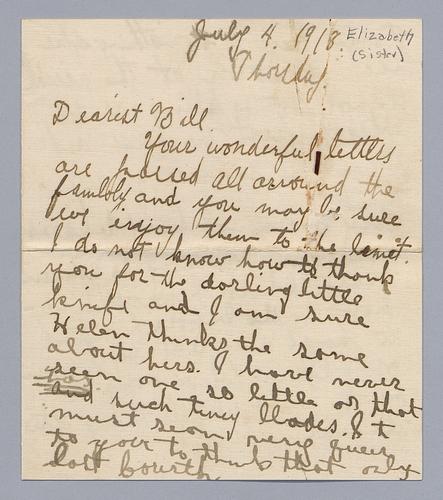 July 4. 1918.
Elizabeth
(Sister)
Thursday.
Dearest Bill
Your wonderful letters
are passed all arround the
family and you may be sure
we enjoy them to the limit.
I do not know how to thank
you for the darling little
knife and I am sure
Helen thinks the same
about hers. I have never
seen one so little or that
had such tiney blades. It
must seem very queer
to you to think that only
last fourth